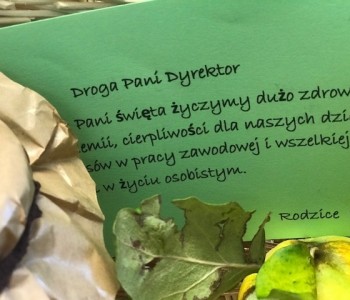 Droga Pani Dyrektor
Pani święta życzymy dużo
cierpliwości dla naszych
w pracy zawodowej i wszelkiej
w życiu osobistym.
Rodzice